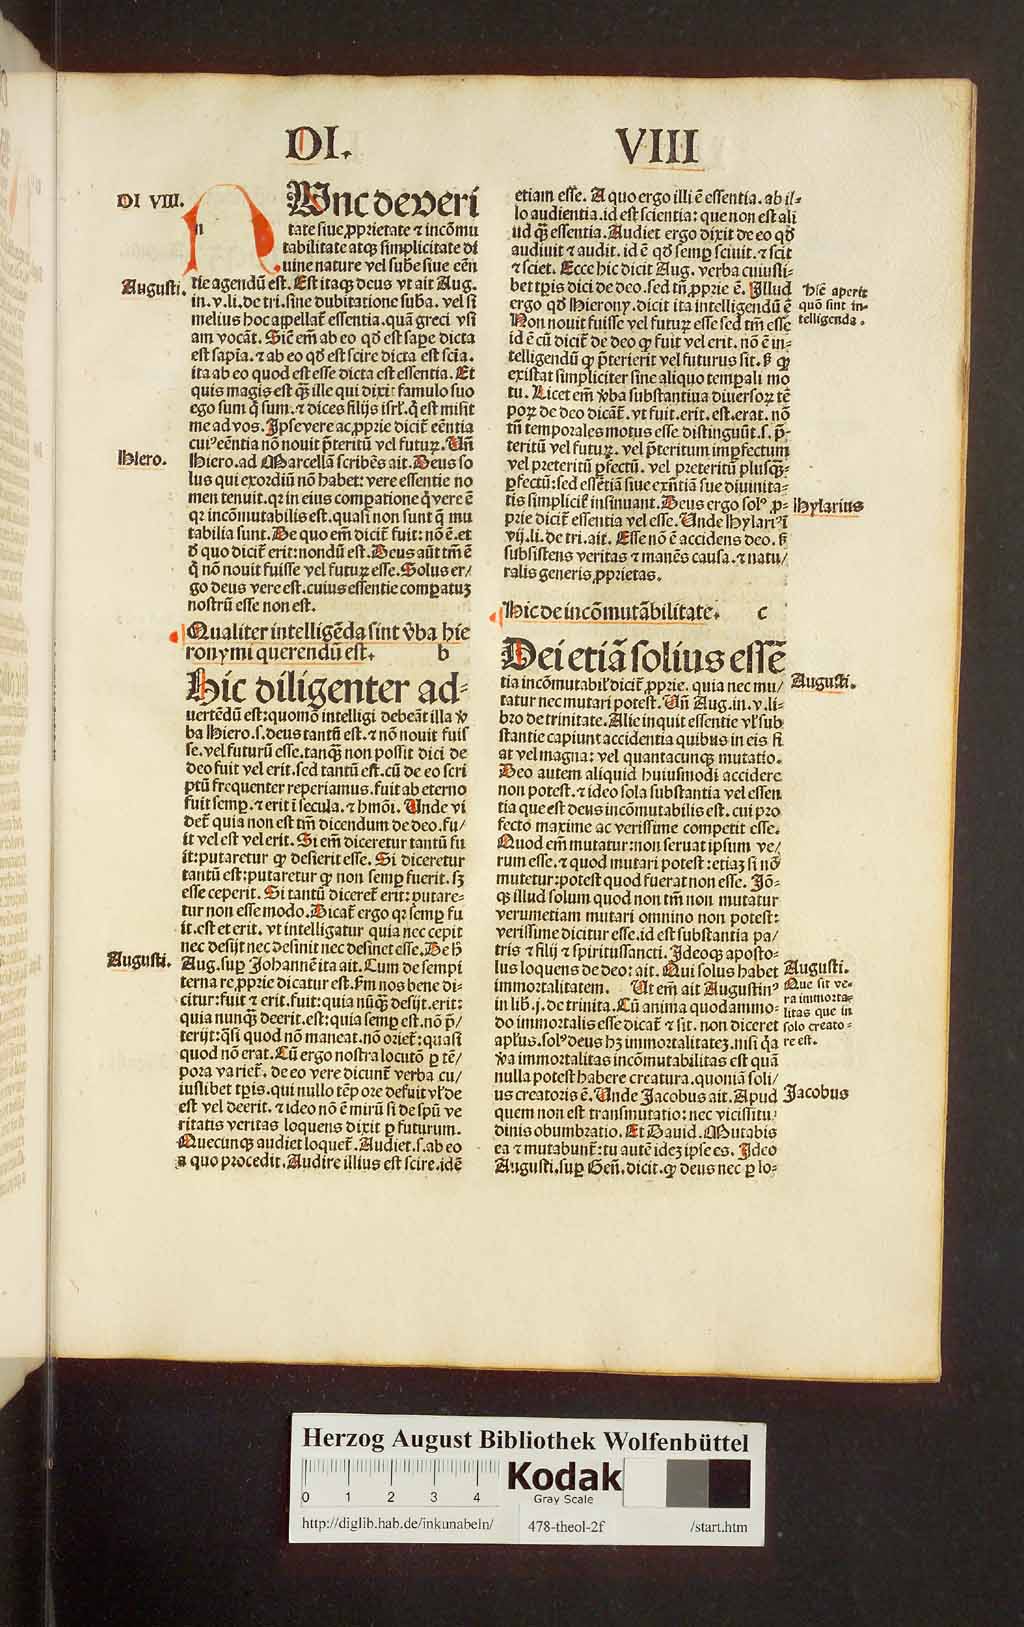 DI. VIII
DI VIII.
Nunc de veri
tate siue ꝓprietate ⁊ incõmu
tabilitate atqꝫ simplicitate di
uine nature vel sub̃e siue eẽn
Augusti.
tie agendũ est. Est itaqꝫ deus vt ait Aug.
in. v. li. de tri. sine dubitatione sub̃a. vel si
melius hoc appellat̃ essentia. quã greci vsi
am vocãt. Sic̃ em̃ ab eo qd̃ est sape dicta
est sapĩa. ⁊ ab eo qd̃ est scire dicta est scĩa.
ita ab eo quod est esse dicta est essentia. Et
quis magis est qꝫ̃ ille qui dixit famulo suo
ego sum q̃ sum. ⁊ dices filijs isrl̃. q̃ est misit
me ad vos. Ipse vere ac ꝓprie dicit̃ eẽntia
cuiꝰ eẽntia nõ nouit p̃teritũ vel futuꝝ. Un̄
Hiero.
Hiero. ad Marcellã scribẽs ait. Deus so
lus qui exordiũ nõ habet: vere essentie no
men tenuit. qꝛ in eius comꝑatione q̃ vere ẽ
qꝛ incõmutabilis est. quasi non sunt q̃ mu
tabilia sunt. De quo em̃ dicit̃ fuit: nõ ẽ. et
d̃ quo dicit̃ erit: nondũ est. Deus aũt tm̃ ẽ
q̃ nõ nouit fuisse vel futuꝝ esse. Solus er/
go deus vere est. cuius essentie comꝑatuꝫ
nostrũ esse non est.
Qualiter intelligẽda sint v̉ba hie
ronymi querendũ est. b
Hic diligenter ad-
uertẽdũ est: quomõ intelligi debeãt illa v̉
ba Hiero. s. deus tantũ est. ⁊ nõ nouit fuis
se. vel futurũ esse. tanqꝫ̃ non possit dici de
deo fuit vel erit. sed tantũ est. cũ de eo scri
ptũ frequenter reperiamus. fuit ab eterno
fuit semꝑ. ⁊ erit ĩ secula. ⁊ hmõi. Unde vi
det̃ quia non est tm̃ dicendum de deo. fu/
it vel est vel erit. Si em̃ diceretur tantũ fu
it: putaretur ꝙ desierit esse. Si diceretur
tantũ est: putaretur ꝙ non semꝑ fuerit. sꝫ
esse ceperit. Si tantũ diceret̃ erit: putare-
tur non esse modo. Dicat̃ ergo qꝛ semꝑ fu
it. est et erit. vt intelligatur quia nec cepit
nec desijt nec desinit nec desinet esse. De h̃
Augusti.
Aug. suꝑ Johannẽ ita ait. Cum de sempi
terna re ꝓprie dicatur est. ẜm nos bene di-
citur: fuit ⁊ erit. fuit: quia nũqꝫ̃ desijt. erit:
quia nunqꝫ̃ deerit. est: quia semꝑ est. nõ p̃/
terijt: q̃si quod nõ maneat. nõ oriet̃: quasi
quod nõ erat. Cũ ergo nostra locutõ ꝑ tẽ/
pora variet̃. de eo vere dicunt̃ verba cu/
iuslibet tꝑis. qui nullo tẽpore defuit vl̃ de
est vel deerit. ⁊ ideo nõ ẽ mirũ si de spũ ve
ritatis veritas loquens dixit ꝑ futurum.
Quecunqꝫ audiet loquet̃. Audiet. s. ab eo
a quo procedit. Audire illius est scire. idẽ
etiam esse. A quo ergo illi ẽ essentia. ab il-
lo audientia. id est scientia: que non est ali
ud qꝫ̃ essentia. Audiet ergo dixit de eo qd̃
audiuit ⁊ audit. id ẽ qd̃ semꝑ sciuit. ⁊ scit
⁊ sciet. Ecce hic dicit Aug. verba cuiusli-
bet tꝑis dici de deo. sed tm̃ ꝓprie ẽ. Illud
Hic̃ aperit
quõ sint in-
telligenda.
ergo qd̃ Hierony. dicit ita intelligendũ ẽ
Non nouit fuisse vel futuꝝ esse sed tm̃ esse
id ẽ cũ dicit̃ de deo ꝙ fuit vel erit. nõ ẽ in-
telligendũ ꝙ p̃terierit vel futurus sit. ẜ ꝙ
existat simpliciter sine aliquo tempali mo
tu. Licet em̃ v̉ba substantiua diuersoꝝ tẽ
poꝝ de deo dicãt̃. vt fuit. erit. est. erat. nõ
tñ temporales motus esse distinguũt. s. p̃-
teritũ vel futuꝝ. vel p̃teritum imꝑfectum
vel preteritũ ꝑfectũ. vel preteritũ plusqꝫ̃-
ꝑfectũ: sed essẽtiã siue exñtiã sue diuinita-
tis simplicit̃ insinuant. Deus ergo solꝰ ꝓ-
Hylarius
prie dicit̃ essentia vel esse. Unde Hylariꝰ ĩ
vij. li. de tri. ait. Esse nõ ẽ accidens deo. ẜ
subsistens veritas ⁊ manẽs causa. ⁊ natu/
ralis generis ꝓprietas.
Hic de incõmutãbilitate. c
Dei etiã solius essẽ
Augusti.
tia incõmutabil̃ dicit̃ ꝓprie. quia nec mu/
tatur nec mutari potest. Un̄ Aug. in. v. li-
bro de trinitate. Alie inquit essentie vl̃ sub
stantie capiunt accidentia quibus in eis fi
at vel magna: vel quantacunqꝫ mutatio.
Deo autem aliquid huiusmodi accidere
non potest. ⁊ ideo sola substantia vel essen
tia que est deus incõmutabilis est. cui pro
fecto maxime ac verissime competit esse.
Quod em̃ mutatur: non seruat ipsum ve/
rum esse. ⁊ quod mutari potest: etiaꝫ si nõ
mutetur: potest quod fuerat non esse. Jõ-
qꝫ illud solum quod non tm̃ non mutatur
verumetiam mutari omnino non potest:
verissime dicitur esse. id est substantia pa/
tris ⁊ filij ⁊ spiritussancti. Ideoqꝫ aposto-
lus loquens de deo: ait. Qui solus habet
Augusti.
Que sit ve-
ra immorta-
litas que in
solo creato-
re est.
immortalitatem. Ut em̃ ait Augustinꝰ
in lib̃. j. de trinita. Cũ anima quodammo-
do immortalis esse dicat̃ ⁊ sit. non diceret
apl̃us. solꝰ deus hꝫ immortalitateꝫ. nisi q̃a
v̉a immortalitas incõmutabilitas est quã
nulla potest habere creatura. quoniã soli/
us creatoris ẽ. Unde Jacobus ait. Apud
Jacobus
quem non est transmutatio: nec vicissitu
dinis obumbratio. Et Dauid. Mutabis
ea ⁊ mutabunt̃: tu autẽ ideꝫ ipse es. Ideo
Augusti. suꝑ Gen̄. dicit. ꝙ deus nec ꝑ lo-
Herzog August Bibliothek Wolfenbüttel
0 1 2 3 4
Kodak
Gray Scale
http://diglib.hab.de/inkunabeln/ 478-theol-2f /start.htm